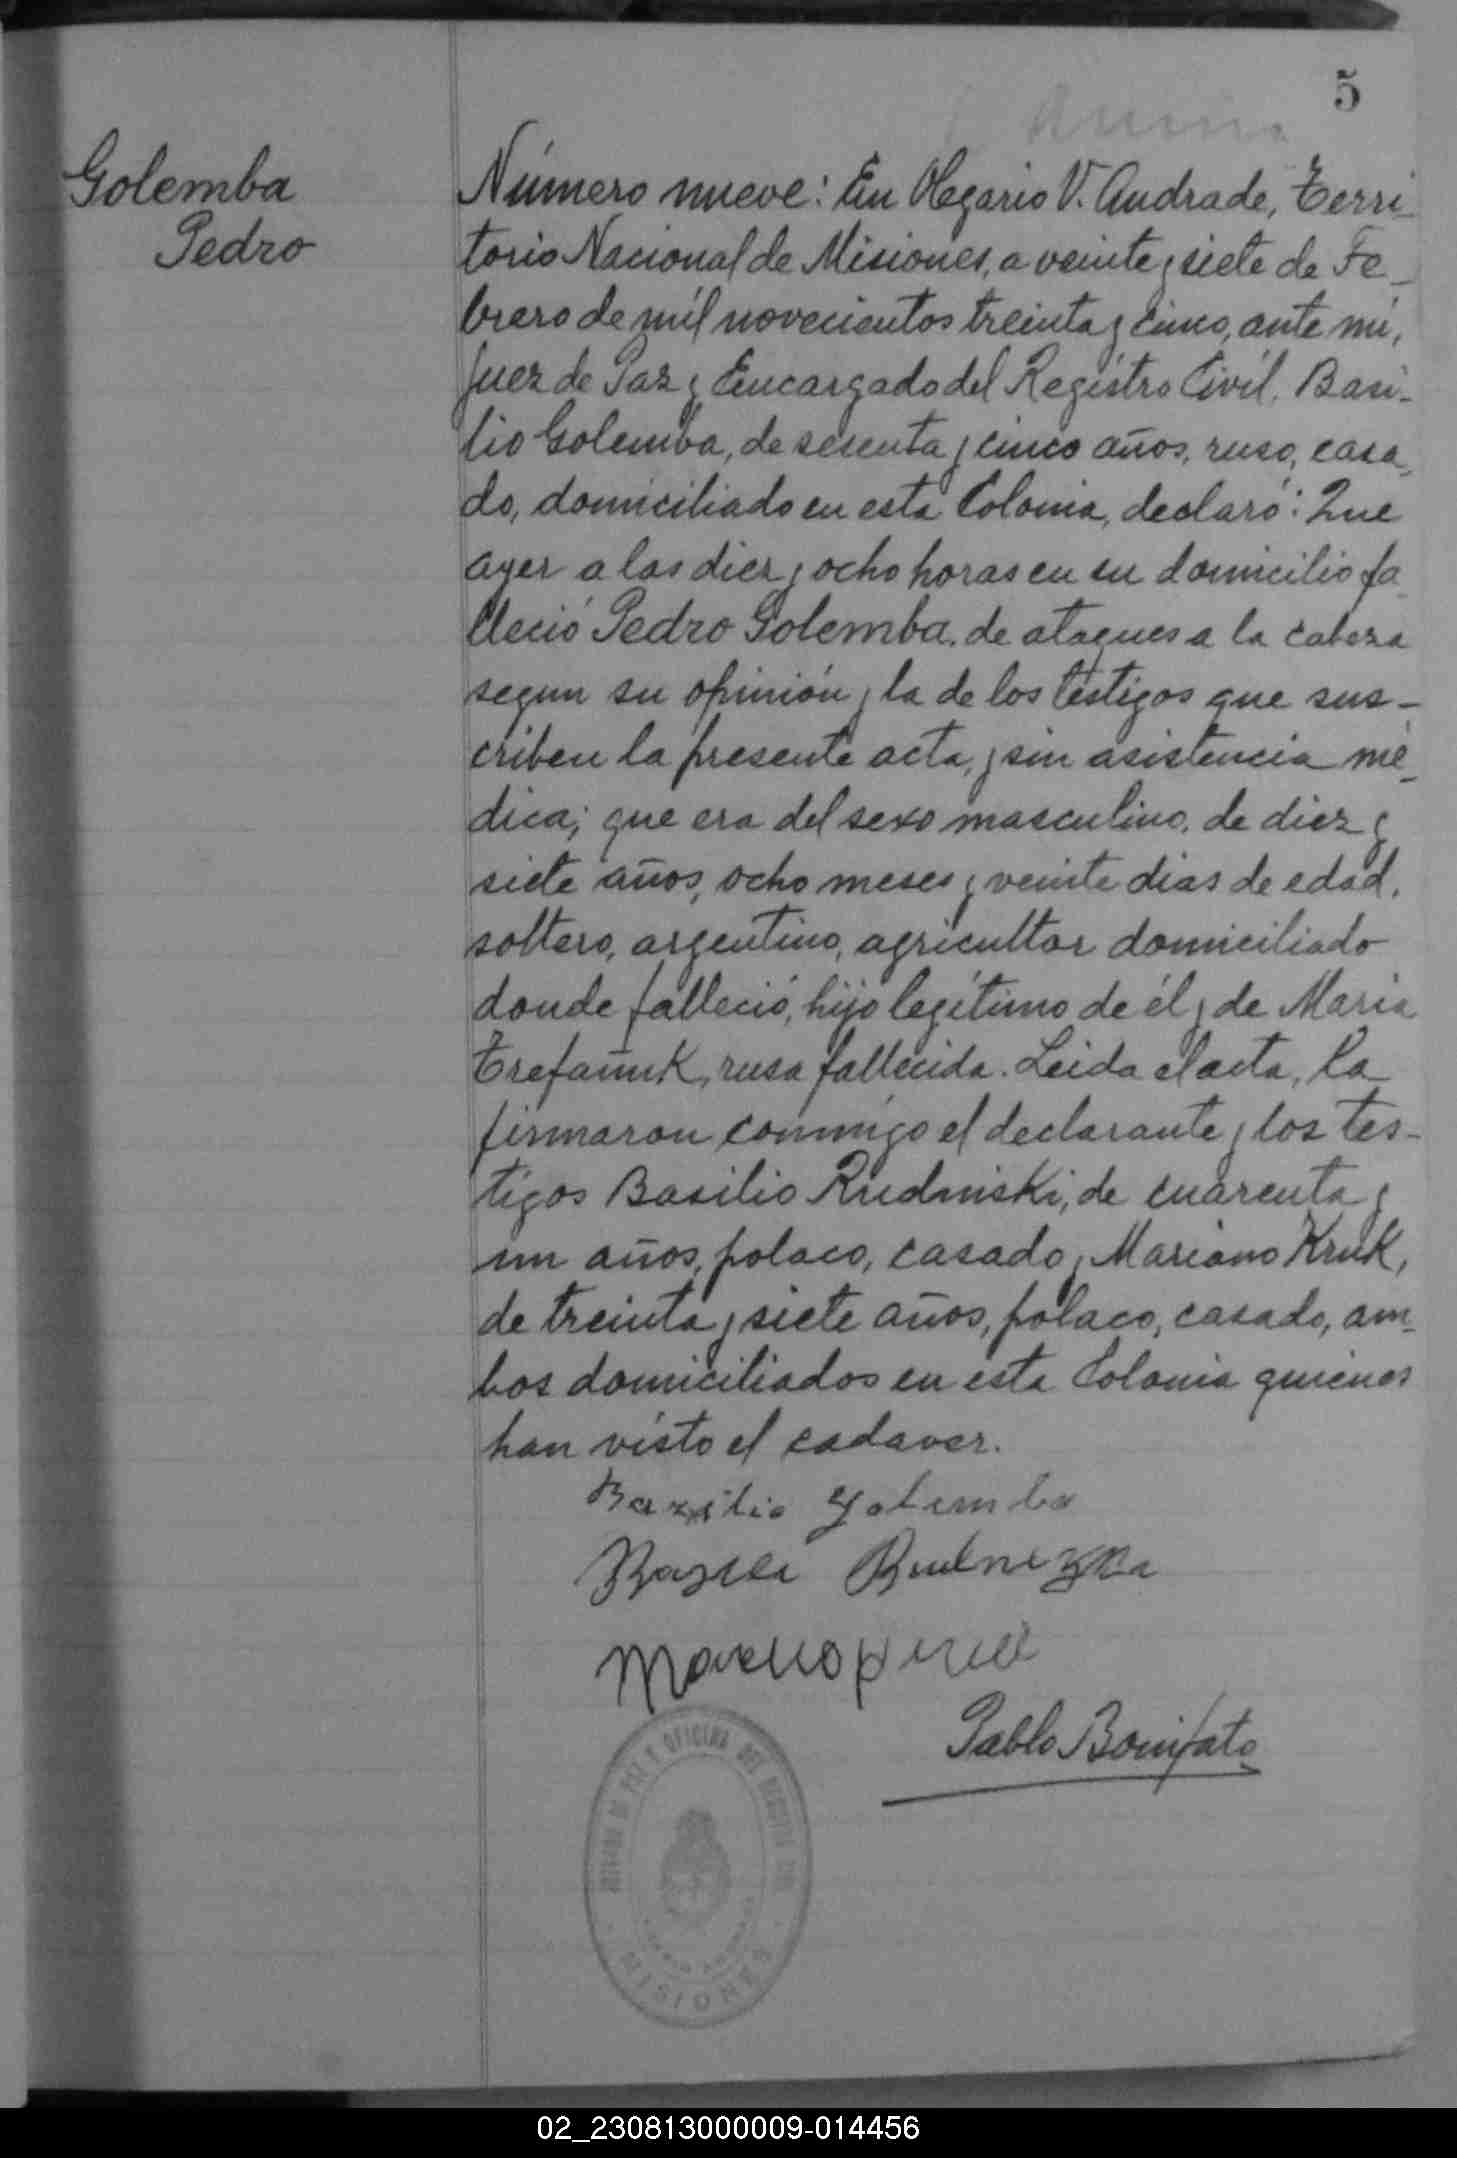 5
Golemba
Pedro
Número nueve: En Olegario V. Andrade, Terri-
torio Nacional de Misiones, a veinte y siete de Fe-
brero de mil novecientos treinta y cinco, ante mí,
Juez de Paz y Encargado del Registro Civil, Basi-
lio Golemba, de sesenta y cinco años, ruso, casa-
do, domiciliado en esta Colonia, declaró: Que
ayer a las diez y ocho horas en su domicilio fa-
lleció Pedro Golemba, de ataques a la cabeza
segun su opinión y la de los testigos que sus-
criben la presente acta, y sin asistencia mé-
dica; que era del sexo masculino, de diez y
siete años, ocho meses y veinte dias de edad,
soltero, argentino, agricultor domiciliado
donde falleció, hijo legítimo de él y de Maria
Trefañuk, rusa fallecida. Leida el acta, la
firmaron conmigo el declarante y los tes-
tigos Basilio Rudniski, de cuarenta y
un años, polaco, casado y Mariano Kruk,
de treinta y siete años, polaco, casado, am-
bos domiciliados en esta Colonia quienes
han visto el cadaver.
Bazilio Golemba
Pablo Bonifato
JUZGADO DE PAZ Y OFICINA DEL REGISTRO CIVIL
MISIONES
02_230813000009-014456